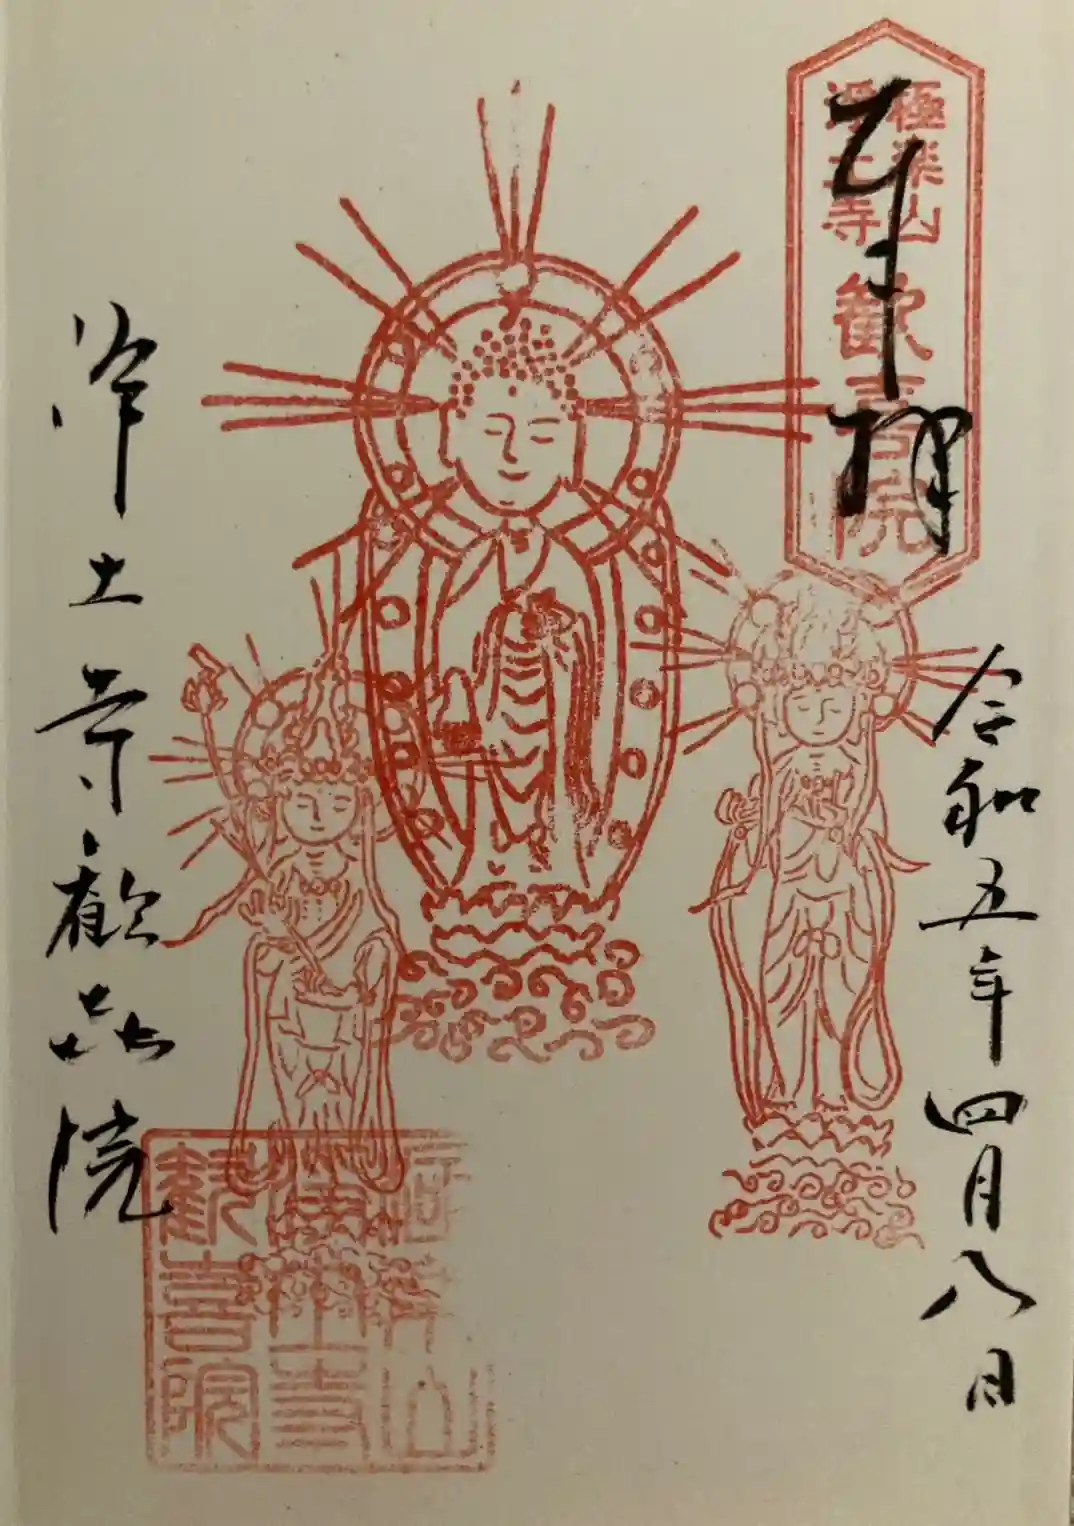 奉拝
極楽山
浄土寺
歓喜院
令和五年四月八日
浄土寺歓喜院
山
寺
歓喜院